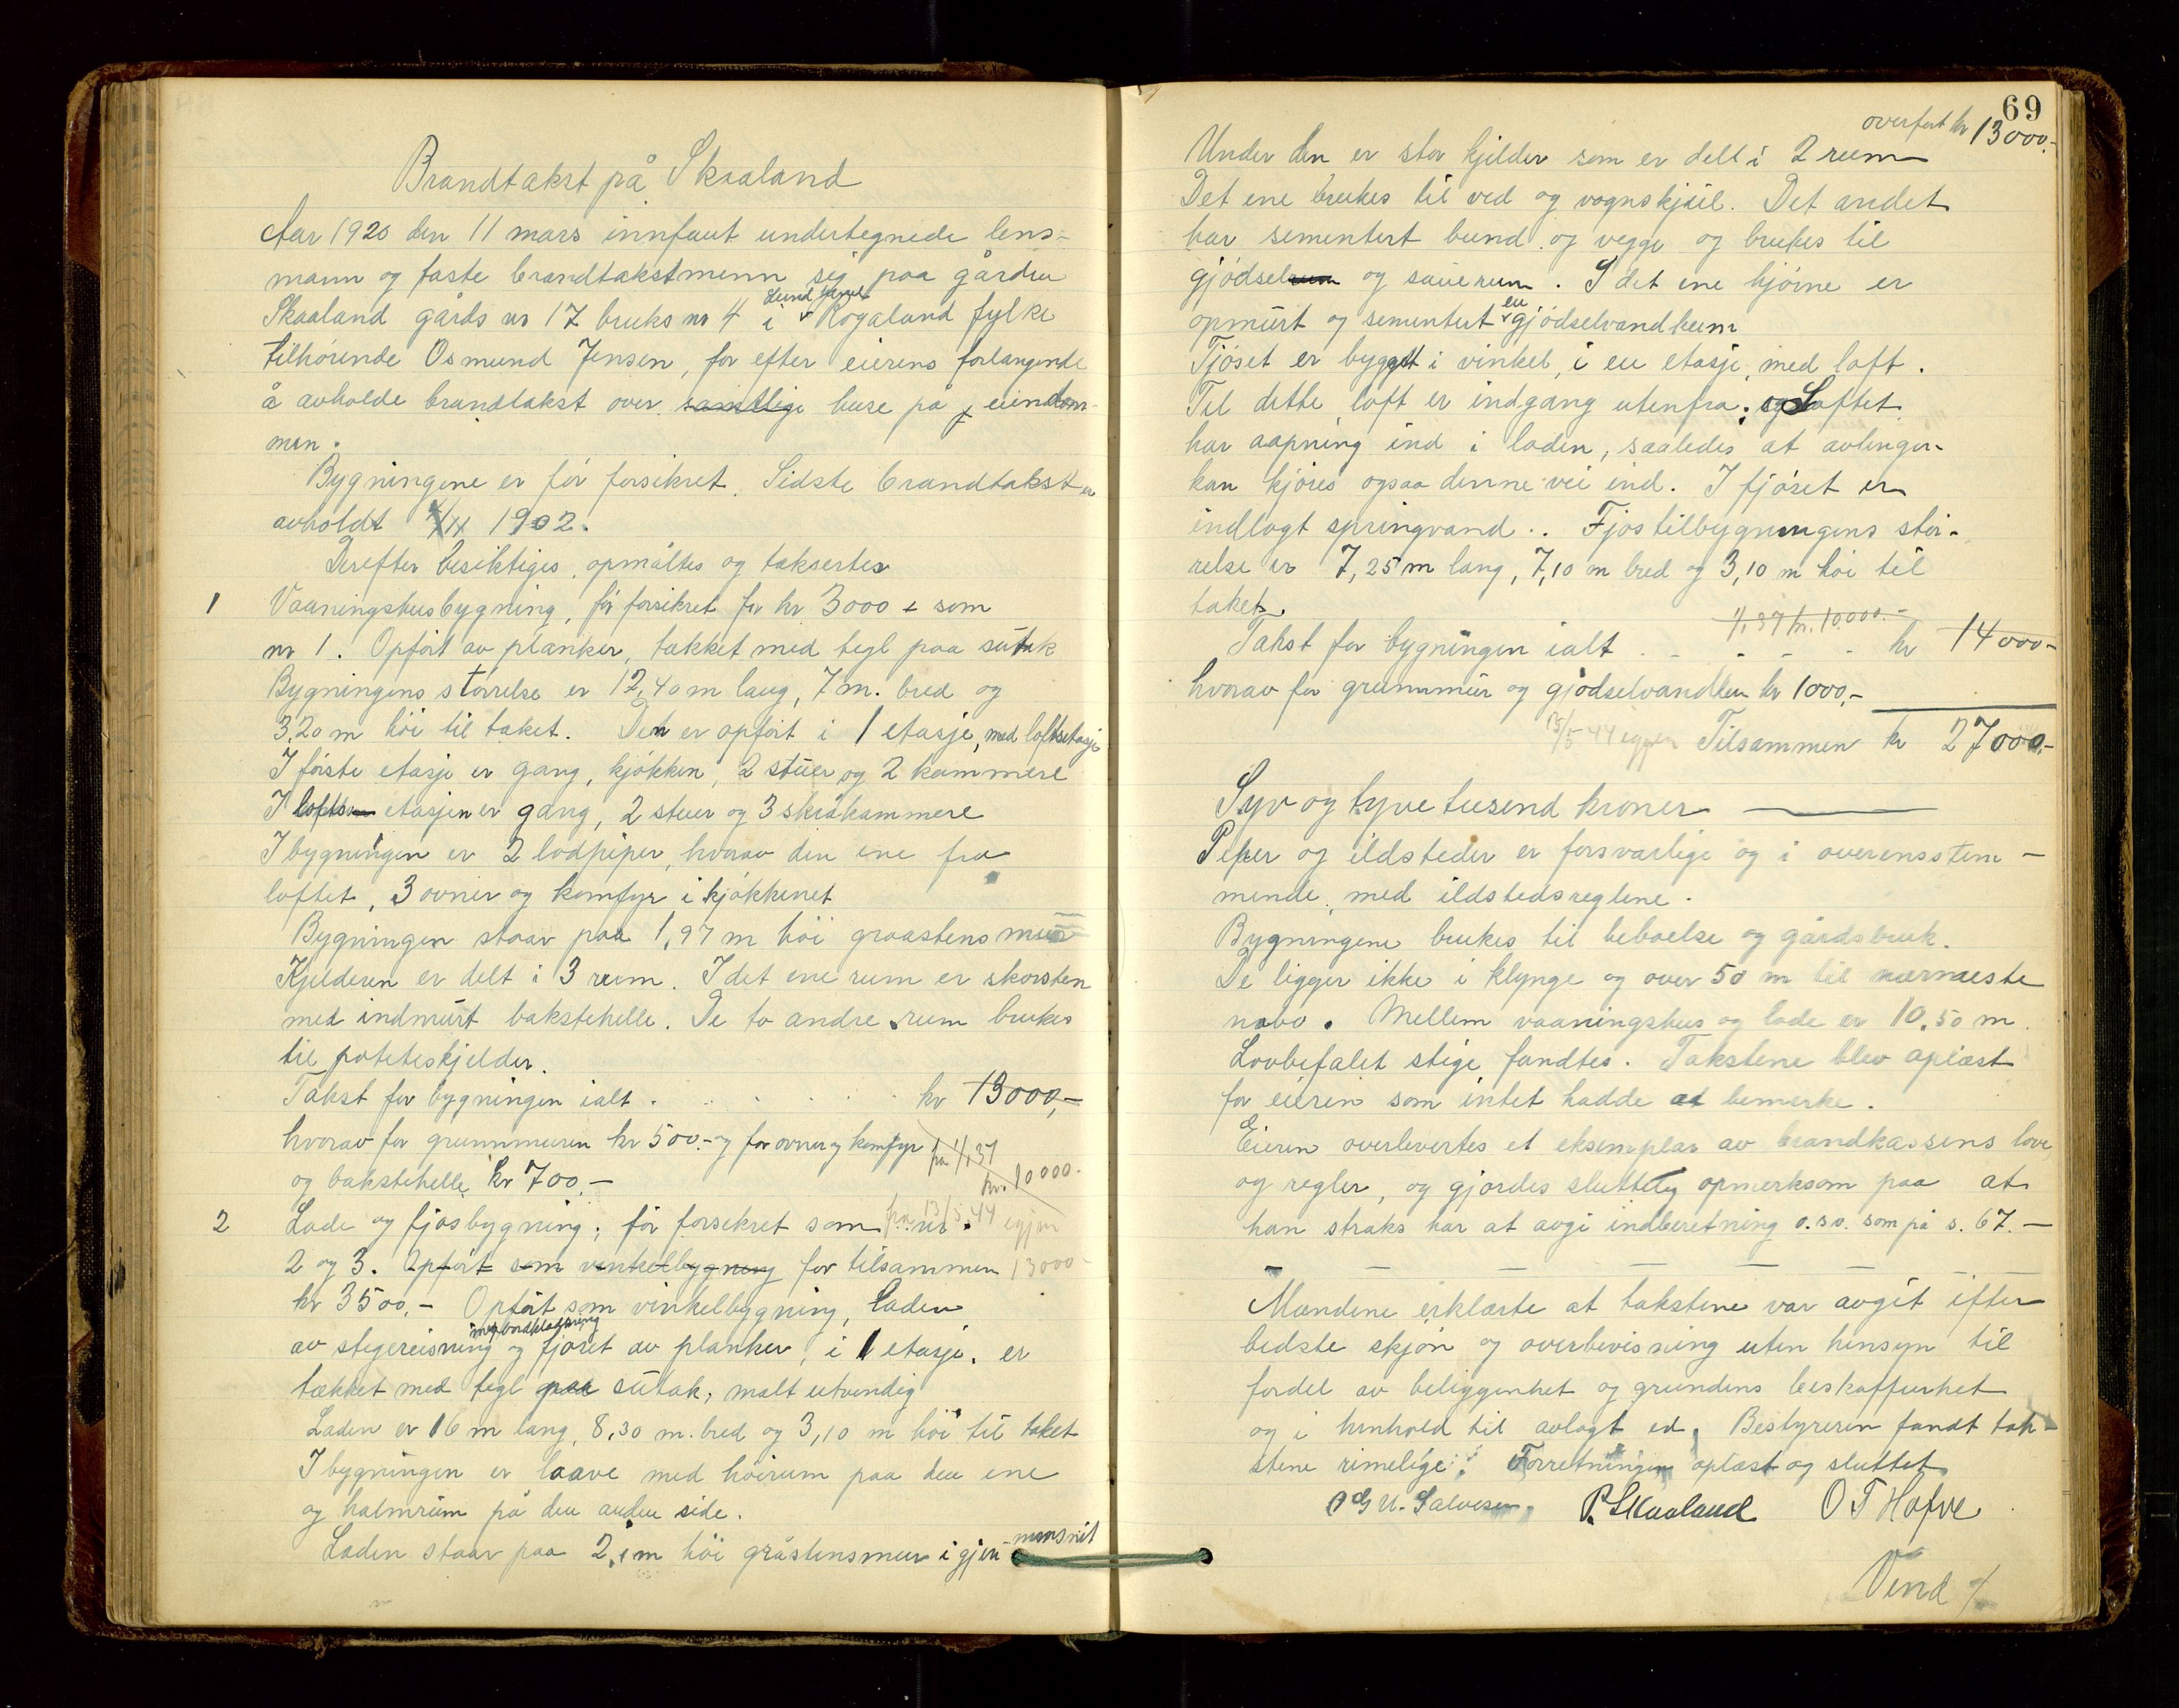 Brandtakst på Skaaland
Aar 1920 den 11 mars innfant undertegnede lens-
mann og faste brandtakstmenn sig paa gården
Skaaland gårds nr 17 bruks nr 4 i Lund herred Rogaland fylke
tilhörende Osmund Jensen, for efter eierens forlangende
å avholde brandtakst over samtlige huse på eiendom-
men.
Bygningene er för forsikret. Sidste brandtakst er
avholdt 1902.
Derefter besiktiges, opmåltes og taksertes
1 Vaaningshusbygning, för forsikret for kr 3000 som
nr 1. Opfört av planker, tækket med tegl paa sutak
Bygningens störrelse er 12,40 m lang, 7 m. bred og
3,20 m höi til taket. Den er opfört i 1 etasje, med loftsetasje
I förste etasje er gang, kjökken, 2 stuer og 2 kammere
I lofts etasjen er gang, 2 stuer og 3 skråkammere
I bygningen er 2 lodpiper, hvorav den ene fra
loftet, 3 ovner og komfyr i kjökkenet
Bygningen staar paa 1,97 m höi graastens mur
Kjelderen er delt i 3 rum. I det ene rum er skorsten
med indmurt bakstehelle. De to andre rum brukes
til poteteskjelder.
Takst for bygningen ialt . . . . . kr 13000,-
hvorav for grunnmuren kr 500.- og for ovner og komfyr
og bakstehelle kr 700.-
fra 1/1 37
kr. 10000.-
fra 13/5 44 igjen
13000-
2 Lade og fjösbygning; för forsikret som nr.
2 og 3. Opfört som vinkelbygning for tilsammen
kr 3500.- Opfört som vinkelbygning, laden
av stegereisning med bordklædning og fjöset av planker, i 1 etasje. er
tækket med tegl paa sutak, malt utvendig
Laden er 16 m lang, 8,30 m. bred og 3,10 m höi til taket
I bygningen er laave med höirum paa den ene
og halmrum på den anden side.
Laden staar paa 2,1 m höi gråstensmur i gjen-nemsnit
69
overfört kr 13000.-
Under den er stor kjelder som er delt i 2 rum
Det ene brukes til ved og vognskjul. Det andet
har sementert bund og vegge og brukes til
gjödselrum og sauerum. I det ene hjörne er
opmurt og sementert en gjödselvandkum
Fjöset er bygget i vinkel, i en etasje, med loft.
Til dette loft er indgang utenfra; og Loftet
har aapning ind i laden, saaledes at avlingen
kan kjöres ogsaa denne vei ind. I fjöset er
indlagt springvand.. Fjöstilbygningens stör-
relse er 7,25 m lang, 7,10 m bred og 3,10 m höi til
taket.
1/1 37 kr. 10.000.-
Takst for bygningen ialt . - - - - kr 14000-
hvorav for grunnmur og gjödselvandkum kr 1000,-
13/5 44 igjen Tilsammen kr 27000.-
Syv og tyve tusend kroner
Piper og ildsteder er forsvarlige og i overensstem-
mende, med ildstedsreglene.
Bygningene brukes til beboelse og gårdsbruk.
De ligger ikke i klynge og over 50 m til nærmeste
nabo. Mellem vaaningshus og lade er 10,50 m.
Lovbefalet stige fandtes. Takstene blev oplæst
for eieren som intet hadde at bemerke.
Eieren overlevertes et eksemplar av brandkassens love
og regler, og gjordes sluttelig opmerksom paa at
han straks har at avgi indberetning o.s.v. som på s. 67.-
Mændene erklærte at takstene var avgit efter
bedste skjön og overbevisning uten hensyn til
fordel av beliggenhet og grundens beskaffenhet
og i henhold til avlagt ed. Bestyreren fandt tak-
stene rimelige. Forretningen oplæst og sluttet
U. Salvesen P. Skaaland O T Hofve
Vend /